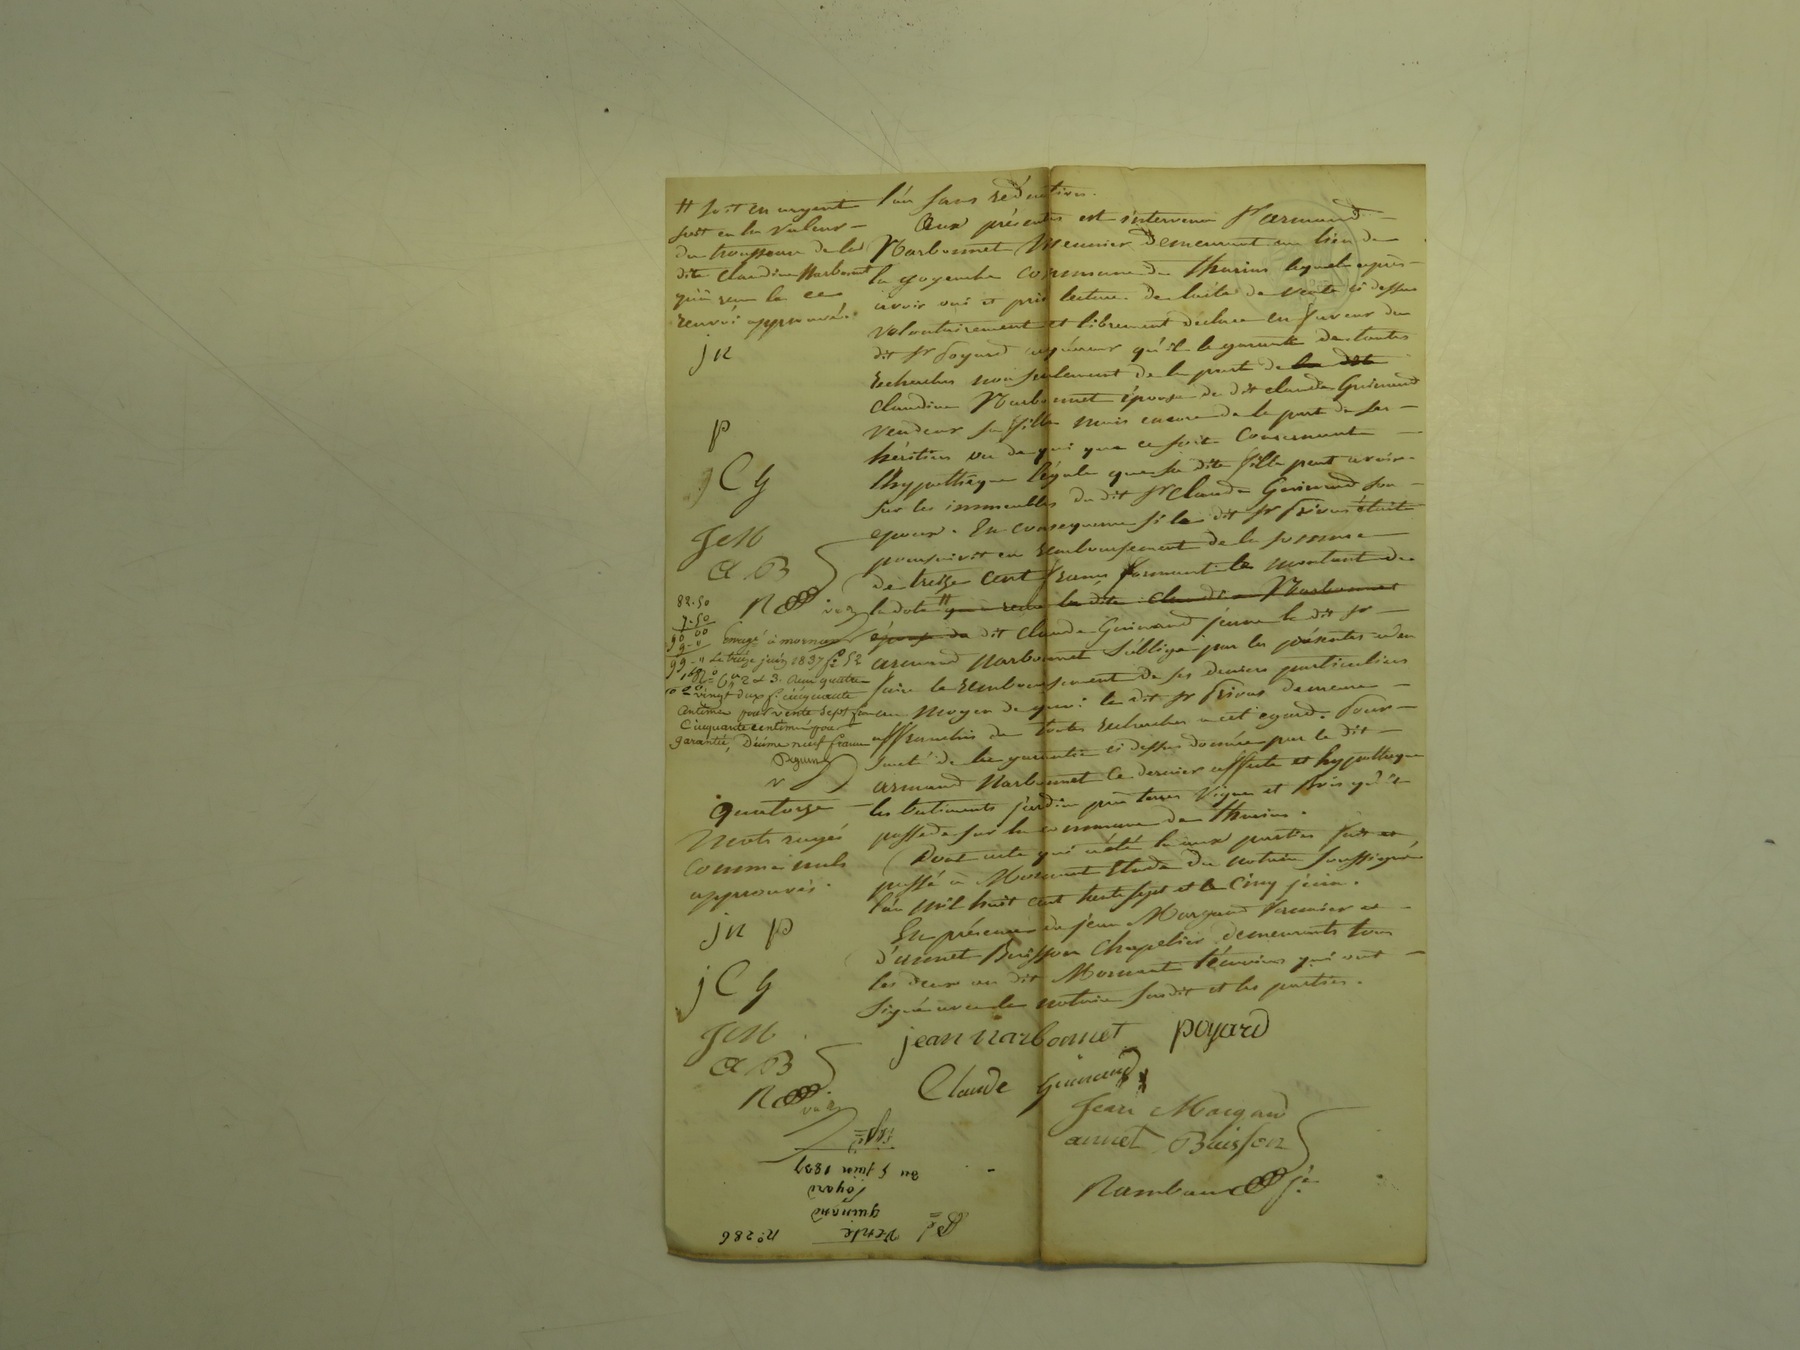 l'un sans rédaction.
Aux présentes est intervenu Sr armand
Narbonnet Meunier demeurant au lieu de
la goyenche commune de thurins lequel après
avoir oui et pris lecture de l'acte de vente ci dessus
volontairement et librement declare en faveur du
dit Sr poyard acquéreur qu'il le garantit de toutes
recherches non seulement de la part de la dite
claudine Narbonnet épouse de dit claude Guinand
vendeur sa fille mais encore de la part de ses
héritiers ou de qui que ce soit Concernant
l'hypothèque légale que sa dite fille peut avoir
sur les immeubles du dit Sr Claude Guinand son
epoux. En consequence si le dit Sr était
poursuivit en remboursement de la somme
de treize cent francs formant le montant de
la dote # que reçue la dite claudine Narbonnet
épouse de dit Claude Guinand jeune le dit Sr
armand Narbonnet s'oblige par les présentes
faire le remboursement de ses deniers particuliers
au Moyen de quoi le dit Sr demeure
affranchis de toutes recherches a cet egard. Pour
sureté de la garantie ci dessus donnée par le dit
armand Narbonnet ce dernier affecte et hypothèque
les batiments jardin prés terres Vignes et Bois qu'il
possede sur la commune de thurins.
Dont acte qui a été lu aux parties fait et
passé à Mornant Etude du notaire soussigné
l'an mil huit cent trente sept et le Cinq juin.
En présence de jean Margand et
d'annet Buisson Chapelier demeurants tous
les deux au dit Mornant témoins qui ont
signé avec le notaire susdit et les parties.
jean narbonnet poyard
Claude Guinand
Jean Margand
annet Buisson
Rambau jne
# soit en argent
soit en la valeur
du trousseau de la
dite claudine Narbonnet
qu'il reçu la ce
renvoi approuvé.
jn
p
j C G
JeM
a B
82.50
7.50
90 00
9 "
99 "
Enregé à mornant
Le treize juin 1837 fo 52
Reçu quatre
vingt deux f. cinquante
centimes pour vente sept francs
Cinquante centimes pour
garantie, Décime neuf francs
quatorze
Mots rayés
comme nuls
approuvés.
jn p
j C G
JeM
a B
n° 286
Vente
guinand
Poyard
du 5 juin 1837